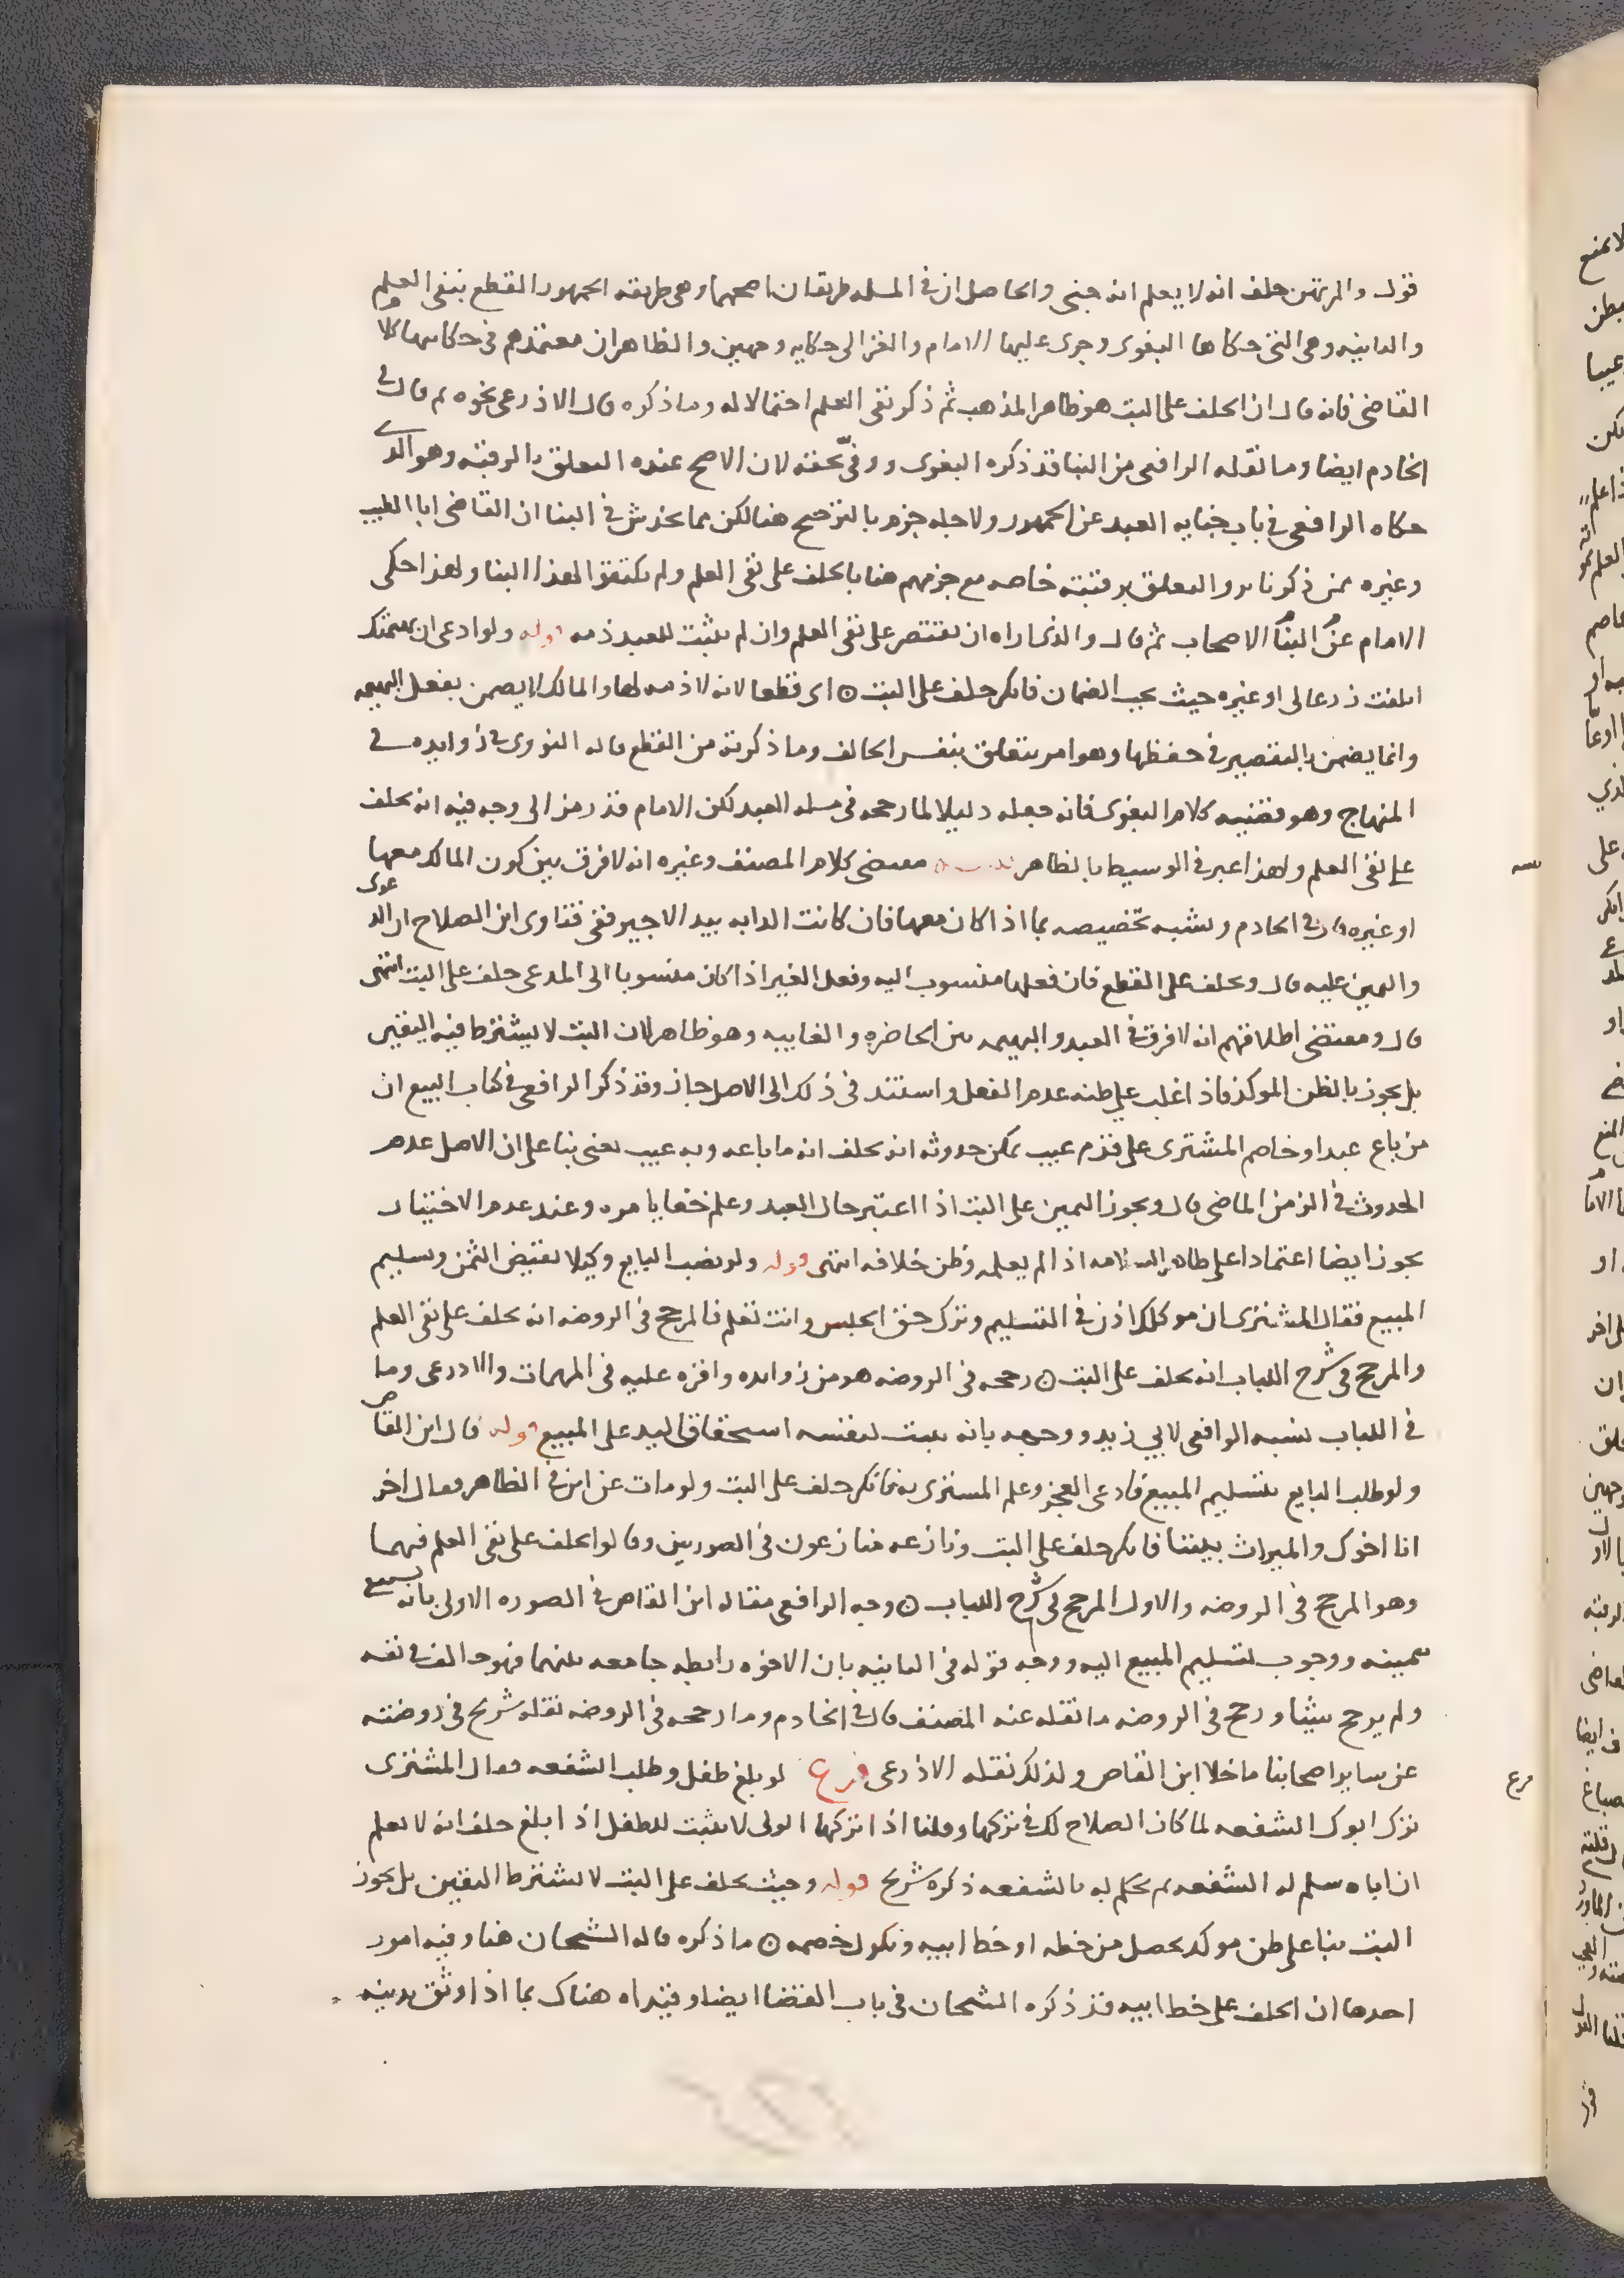 قول والمرتهن حلف انه لا يعلم انه جنى والحاصل ان في المسله طريقان اصحهما وهى طريقه الجمهور القطع بنفى العلم
والثانيه وهى التى حكاها البغوى وجرى عليها الامام والغزالى حكايه وجهين والظاهر ان معتمدهم فى حكايتهما كلام
القاضى فانه قال ان الحلف على البت هو ظاهر المذهب ثم ذكر نفى العلم احتمالا له وما ذكره قال الاذرعى نحوه ثم قال في
الخادم ايضا وما نقله الرافعى من البنا قد ذكره البغوى وفى صحته لان الاصح عنده التعلق بالرقبه وهو الذى
حكاه الرافعى في باب جنايه العبد عن الجمهور ولاجله جزم بالترجيح هنا لكن مما يخدش في البنا ان القاضى ابا الطيب
وغيره ممن ذكرنا التعلق برقبته خاصه مع جزمهم هنا بالحلف على نفى العلم ولم يلتفتوا لهذا البنا ولهذا حكى
الامام عن البنا الاصحاب ثم قال والذى اراه ان يقتصر على نفى العلم وان لم يثبت للعبد ذمه قوله ولو ادعى ان بهيمتك
اتلفت زرعا لى او غيره حيث يجب الضمان فانكر حلف على البت ۞ اى قطعا لانه لا ذمه لها والمالك لا يضمن بفعل البهيمه
وانما يضمن بالتقصير في حفظها وهو امر يتعلق بنفس الحالف وما ذكرته من القطع قاله النووى في زوايده في
المنهاج وهو قضيه كلام البغوى فانه جعله دليلا لما رجحه فى مسله العبد لكن الامام قد رمز الى وجه فيه انه يحلف
على نفى العلم ولهذا عبر في الوسيط بالظاهر تنبيه مقتضى كلام المصنف وغيره انه لا فرق بين كون المالك معها
او غيره قال في الخادم ويشبه تخصيصه بما اذا كان معها فان كانت الدابه بيد الاجير ففى فتاوى ابن الصلاح ان الدعوى
واليمين عليه قال ويحلف على القطع فان فعلها منسوب اليه وفعل الغير اذا كان منسوبا الى المدعى حلف على البت انتهى
قال ومقتضى اطلاقهم انه لا فرق في العبد والبهيمه بين الحاضره والغايبه وهو ظاهر لان البت لا يشترط فيه اليقين
بل يجوز بالظن الموكد فاذا غلب على ظنه عدم الفعل واستند فى ذلك الى الاصل جاز وقد ذكر الرافعى في كتاب البيع ان
من باع عبدا وخاصم المشترى على قدم عيب يمكن حدوثه انه يحلف انه ما باعه وبه عيب يعنى بنا على ان الاصل عدم
الحدوث في الزمن الماضى قال ويجوز اليمين على البت اذا اعتبر حال العبد وعلم خفايا امره وعند عدم الاختبار
يجوز ايضا اعتمادا على ظاهر السلامه اذا لم يعلم وظن خلافه انتهى قوله ولو نصب البايع وكيلا لقبض الثمن وتسليم
المبيع فقال المشترى ان موكلك اذن في التسليم وترك حق الحبس وانت تعلم فالمرجح في الروضه انه يحلف على نفى العلم
والمرجح في شرح اللباب انه يحلف على البت ۞ رجحه فى الروضه هو من زوايده واقره عليه فى المهمات والاذرعى وما
في اللباب نسبه الرافعى لابي زيد ووجهه بانه يثبت لنفسه استحقاق اليد على المبيع قوله قال ابن القاص
ولو طلب البايع تسليم المبيع فادعى العجز وعلم المشترى به فانكر حلف على البت ولو مات عن ابن في الظاهر فقال اخر
انا اخوك والميراث بيننا فانكر حلف على البت ونازعه منازعون في الصورتين وقالوا يحلف على نفى العلم فيهما
وهو المرجح في الروضه والاول المرجح فى شرح اللباب ۞ وجه الرافعى مقاله ابن القاص في الصوره الاولى بانه يستبقى
بيمينه وجوب تسليم المبيع اليه ووجه قوله في الثانيه بان الاخوه رابطه جامعه بينهما فهو حالف في نفسه
ولم يرجح شيئا ورجح فى الروضه ما نقله عنه المصنف قال في الخادم وما رجحه فى الروضه نقله شريح فى روضته
عن ساير اصحابنا ما خلا ابن القاص ولذلك نقله الاذرعى فرع لو بلغ طفل وطلب الشفعه فقال المشترى
ترك ابوك الشفعه لما كان الصلاح لك في تركها وقلنا اذا تركها الولى لا يثبت للطفل اذا بلغ حلف انه لا يعلم
ان اباه سلم له الشفعه ثم يحكم له بالشفعه ذكره شريح قوله وحيث يحلف على البت لا يشترط اليقين بل يجوز
البت بنا على ظن موكد يحصل من خطه او خط ابيه ونكول خصمه ۞ ما ذكره قاله الشيخان هنا وفيه امور
احدها ان الحلف على خط ابيه قد ذكره الشيخان فى باب القضا ايضا وقيداه هناك بما اذا وثق بدينه
فرع